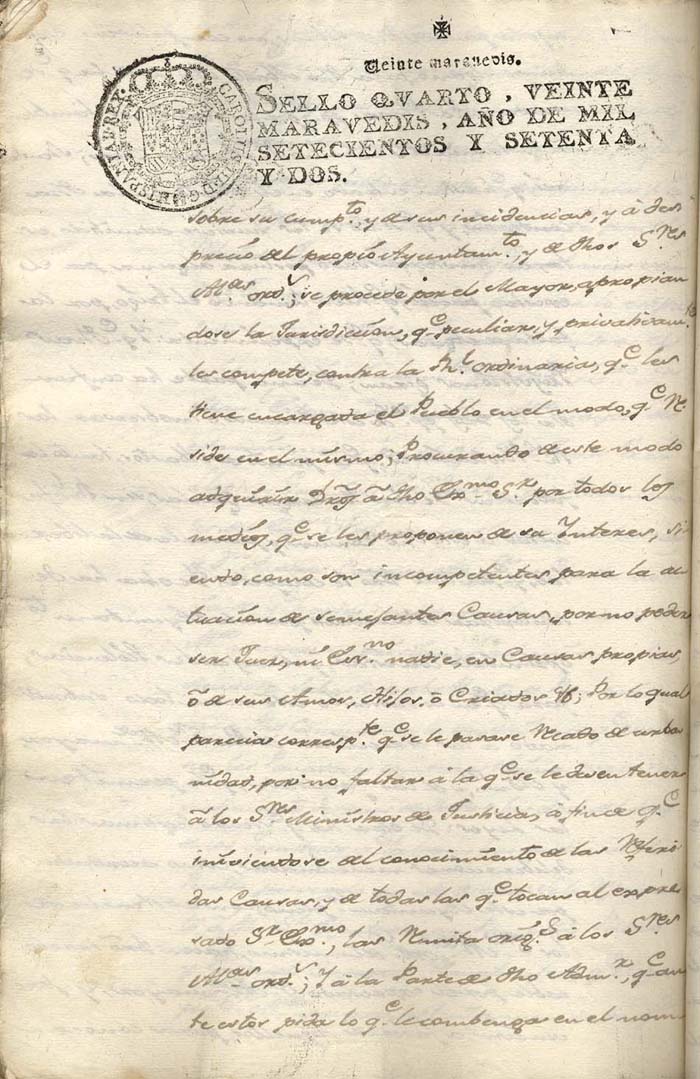 Veinte maravedis.
SELLO QVARTO, VEINTE
MARAVEDIS, AÑO DE MIL
SETECIENTOS Y SETENTA
Y DOS.
CAROLUS III D G HISPANIAR REX
sobre su cump.to, y de sus incidencias, y à des
precio del propio Ayuntam.to, y de dhos S.res
Al.des ord.s; se procede por el Mayor, apropian
dose la Jurisdiccion, q.e peculiar, y privativam.te
les compete, contra la R.l ordinaria, q.e les
tiene encargada el Pueblo en el modo, q.e Re
side en el mismo; Procurando de este modo
adquirir Dros à dho Ex.mo S.r por todos los
medios, q.e se les proponen de su Interes, si
endo, como son incompetentes para la ac
tuacion de semejantes Causas, por no poder
ser Juez, ni Ess.no nadie, en Causas propias,
ò de sus Amos, Hijos, ò Criados; Por lo qual
parecia corresp.te q.e se le pasase Recado de urba
nidad, por no faltar à la q.e se le debe tener
à los S.res Ministros de Justicia, à fin de q.e
iniviendose del conocimiento de las Referi
das Causas, y de todas las q.e tocan al expre
sado S.r Ex.mo, las Remita orig.s à los S.res
Al.des ord.s; Y à la Parte de dho Adm.r, q.e an
te estos pida lo q.e le combenga en el nom